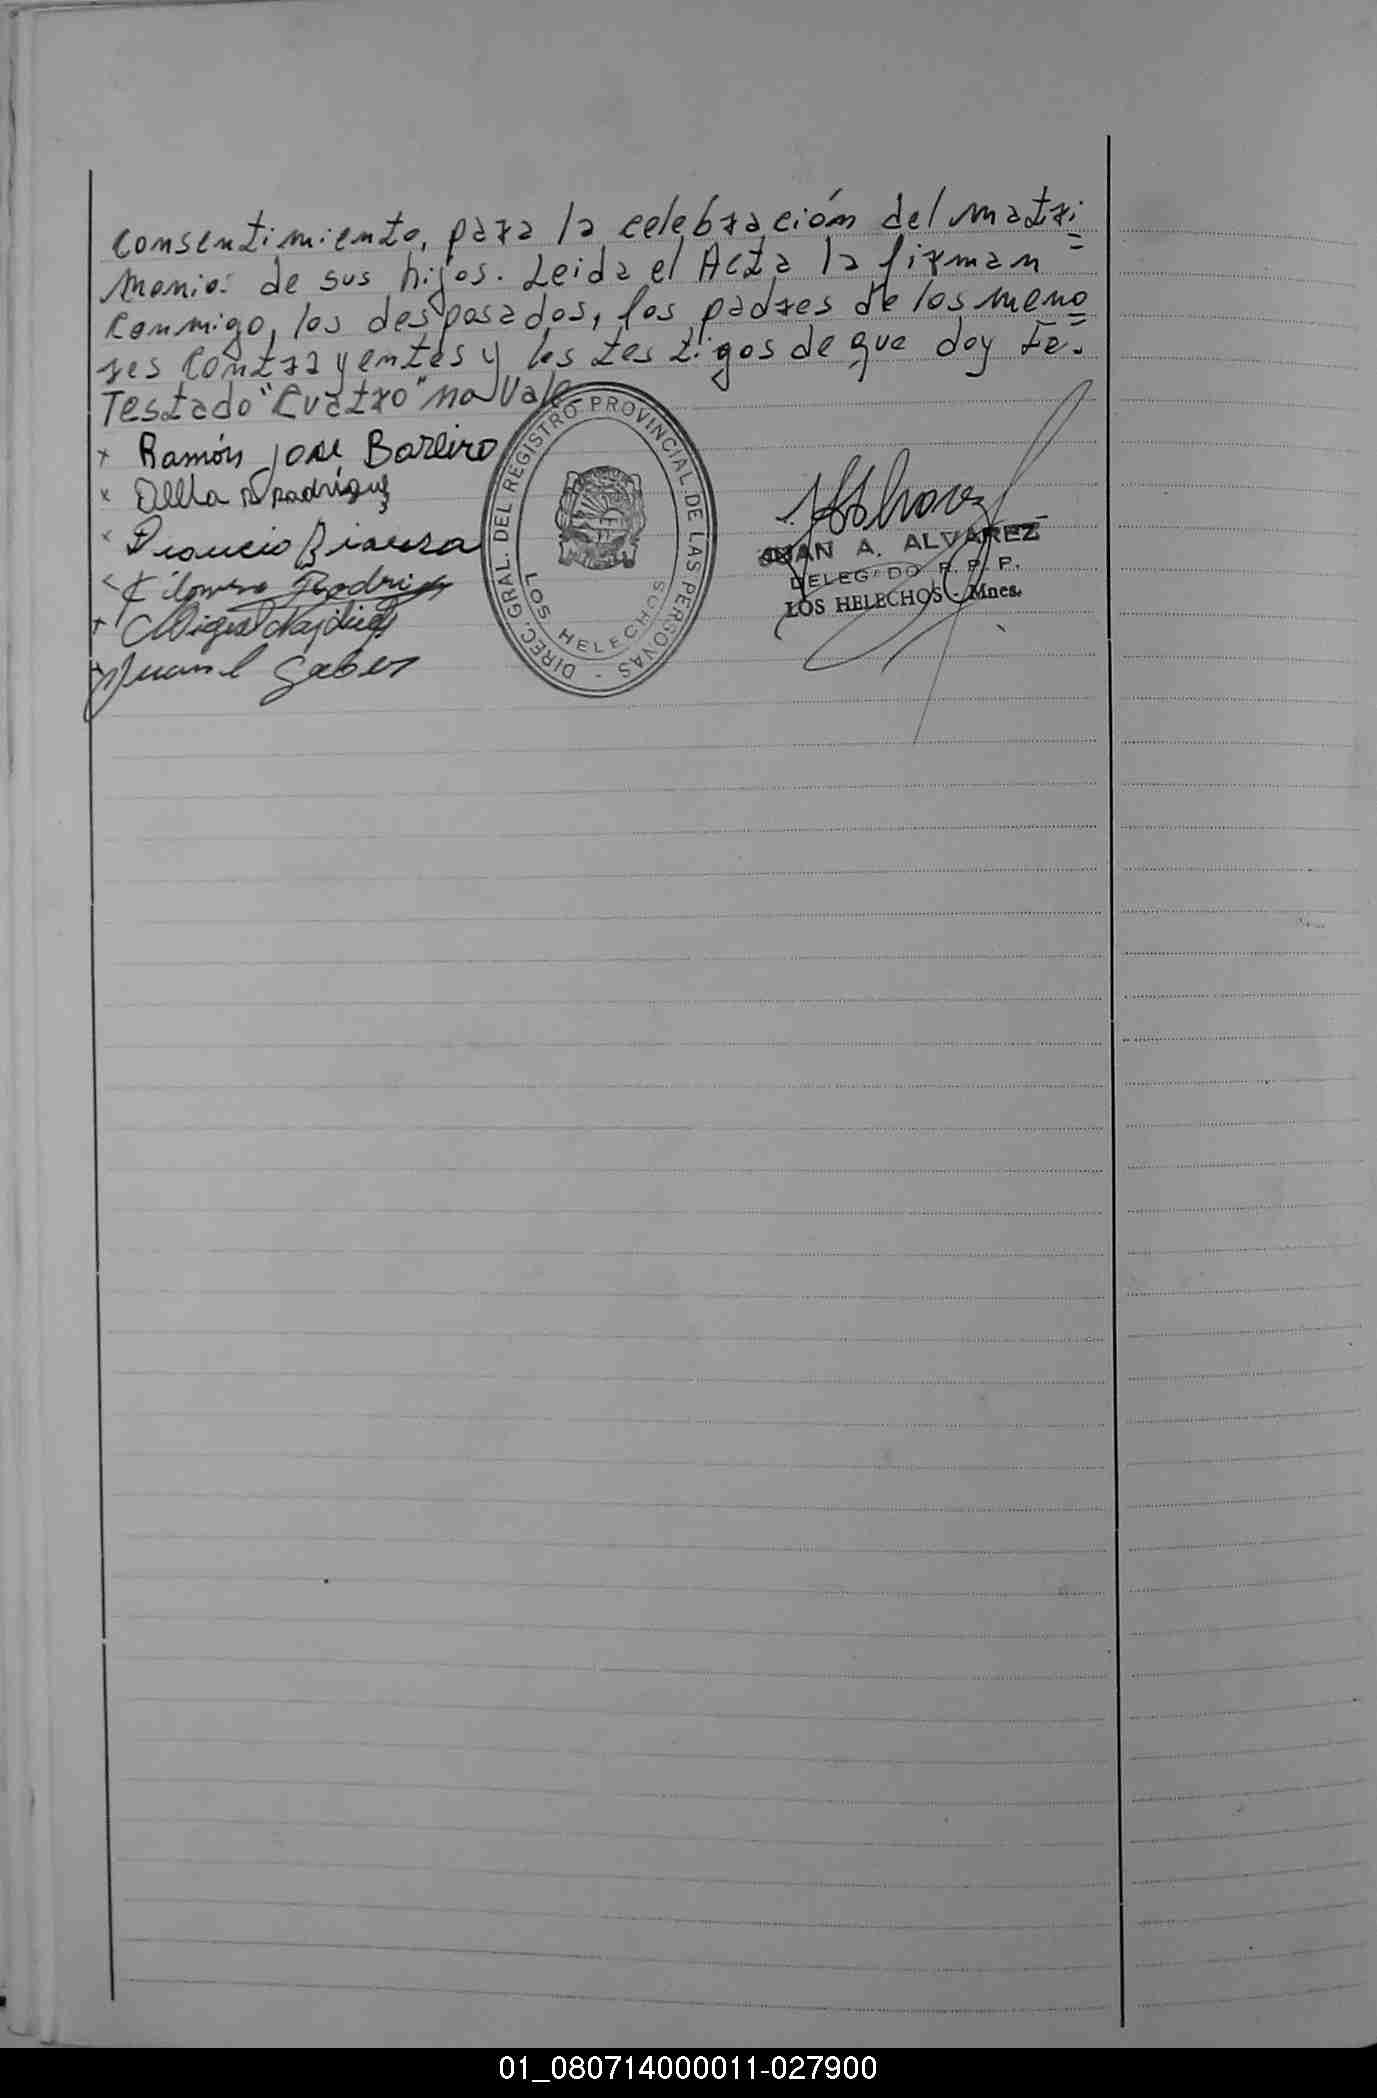 consentimiento, para la celebración del matri=
monio: de sus hijos. Leida el Acta la firman
conmigo, los desposados, los padres de los meno=
res contrayentes y los testigos de que doy Fe.
Testado "Cuatro" no Vale
x Ramón José Bareiro
x Rodríguez
x
x Filomena Rodrig
x Miguel
x Juan Gabes
DIREC. GRAL. DEL REGISTRO PROVINCIAL DE LAS PERSONAS -
LOS HELECHOS
JUAN A. ALVAREZ
DELEGADO R. P. P.
LOS HELECHOS - Mnes.
01_080714000011-027900